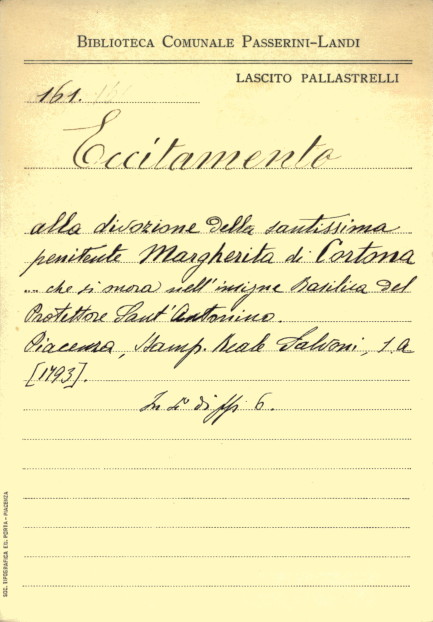 BIBLIOTECA COMUNALE PASSERINI-LANDI
LASCITO PALLASTRELLI
161.
Eccitamento
alla divozione della santissima
penitente Margherita di Cortona
... che si onora nell'insigne Basilica del
Protettore Sant'Antonino.
Piacenza, Stamp. Reale Salvoni, s.a
[1793].
In di ff 6.
SOC. TIPOGRAFICA ED. PORTA - PIACENZA